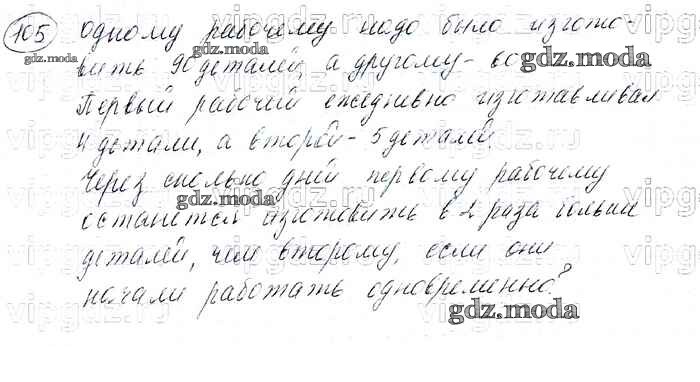 105 Одному рабочему надо было изгото-
вить 90 деталей, а другому - 60
Первый рабочий ежедневно изготавливал
4 детали, а второй - 5 деталей
Через сколько дней первому рабочему
останется изготовить в 2 раза больше
деталей, чем второму, если они
начали работать одновременно?
gdz.moda
gdz.moda
gdz.moda
gdz.moda
gdz.moda
vipgdz.ru